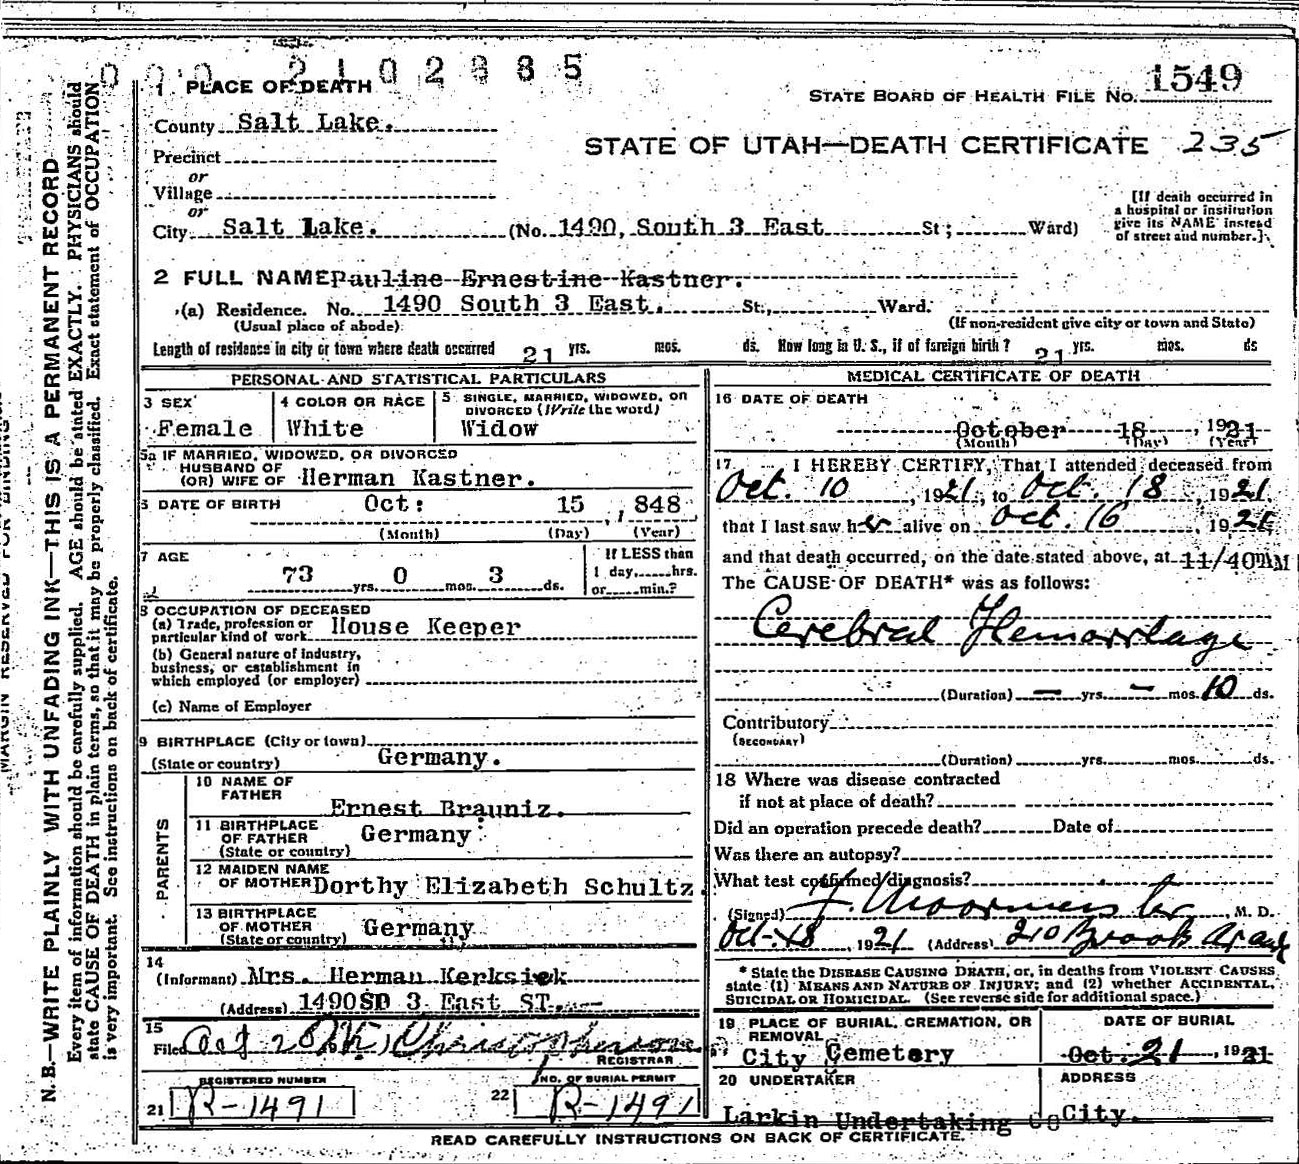 0 0 0 2 1 0 2 8 8 5
1 PLACE OF DEATH
STATE BOARD OF HEALTH FILE NO. 1549
County Salt Lake.
STATE OF UTAH—DEATH CERTIFICATE 235
Precinct
or
Village
or
City Salt Lake. (No. 1490, South 3 East St; Ward)
[If death occurred in
a hospital or institution
give its NAME instead
of street and number.]
2 FULL NAME Pauline Ernestine Kastner.
(a) Residence. No. 1490 South 3 East. St., Ward.
(Usual place of abode) (If non-resident give city or town and State)
Length of residence in city or town where death occurred 21 yrs. mos. ds. How long in U. S., if of foreign birth? 21 yrs. mos. ds
PERSONAL AND STATISTICAL PARTICULARS
3 SEX
Female
4 COLOR OR RACE
White
5 SINGLE, MARRIED, WIDOWED, OR
DIVORCED (Write the word)
Widow
5a IF MARRIED, WIDOWED, OR DIVORCED
HUSBAND OF
(OR) WIFE OF Herman Kastner.
6 DATE OF BIRTH Oct: 15 , 848
(Month) (Day) (Year)
7 AGE
73 yrs. 0 mos. 3 ds.
If LESS than
1 day, hrs.
or min.?
8 OCCUPATION OF DECEASED
(a) Trade, profession or
particular kind of work House Keeper
(b) General nature of industry,
business, or establishment in
which employed (or employer)
(c) Name of Employer
9 BIRTHPLACE (City or town)
(State or country) Germany.
PARENTS
10 NAME OF
FATHER
Ernest Brauniz.
11 BIRTHPLACE
OF FATHER Germany
(State or country)
12 MAIDEN NAME
OF MOTHER Dorthy Elizabeth Schultz.
13 BIRTHPLACE
OF MOTHER Germany
(State or country)
14
(Informant) Mrs. Herman Kerksiek
(Address) 1490 SD 3 East ST.
15
Filed Oct 20
REGISTRAR
REGISTERED NUMBER
21 R-1491
NO. OF BURIAL PERMIT
22 R-1491
MEDICAL CERTIFICATE OF DEATH
16 DATE OF DEATH
October 18 , 1921
(Month) (Day) (Year)
17 I HEREBY CERTIFY, That I attended deceased from
Oct. 10 , 1921, to Oct. 18 , 1921,
that I last saw her alive on Oct. 16 , 1921
and that death occurred, on the date stated above, at 11/40 AM
The CAUSE OF DEATH* was as follows:
Cerebral Hemorrhage
(Duration) — yrs. — mos. 10 ds.
Contributory
(SECONDARY)
(Duration) yrs. mos. ds.
18 Where was disease contracted
if not at place of death?
Did an operation precede death? Date of
Was there an autopsy?
What test confirmed diagnosis?
(Signed) F. Moormeister, M. D.
Oct. 18, 1921 (Address) 210 Brooks Arcade
* State the DISEASE CAUSING DEATH, or, in deaths from VIOLENT CAUSES,
state (1) MEANS AND NATURE OF INJURY; and (2) whether ACCIDENTAL,
SUICIDAL OR HOMICIDAL. (See reverse side for additional space.)
19 PLACE OF BURIAL, CREMATION, OR
REMOVAL
City Cemetery
DATE OF BURIAL
Oct. 21 , 1921
20 UNDERTAKER
Larkin Undertaking Co
ADDRESS
City.
READ CAREFULLY INSTRUCTIONS ON BACK OF CERTIFICATE.
MARGIN RESERVED FOR BINDING
N. B.—WRITE PLAINLY WITH UNFADING INK—THIS IS A PERMANENT RECORD
Every item of information should be carefully supplied. AGE should be stated EXACTLY. PHYSICIANS should
state CAUSE OF DEATH in plain terms, so that it may be properly classified. Exact statement of OCCUPATION
is very important. See instructions on back of certificate.